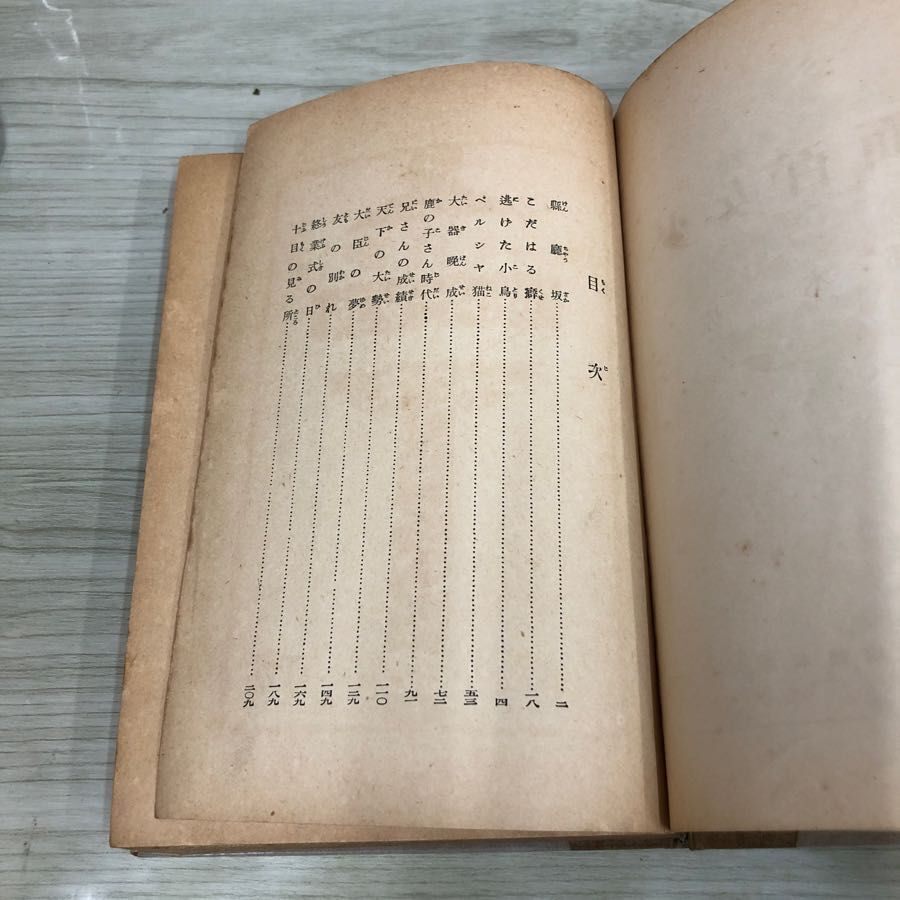 目次
縣廳坂 二
こだはる癖 一八
逃げた小鳥 四
ペルシヤ猫 五三
大器晩成 七二
鹿の子さん時代 九一
兄さんの成績 一一〇
天下の大勢 一二九
大臣の夢 一四九
友の別れ 一六九
終業式の日 一八九
十目の見る所 二〇九